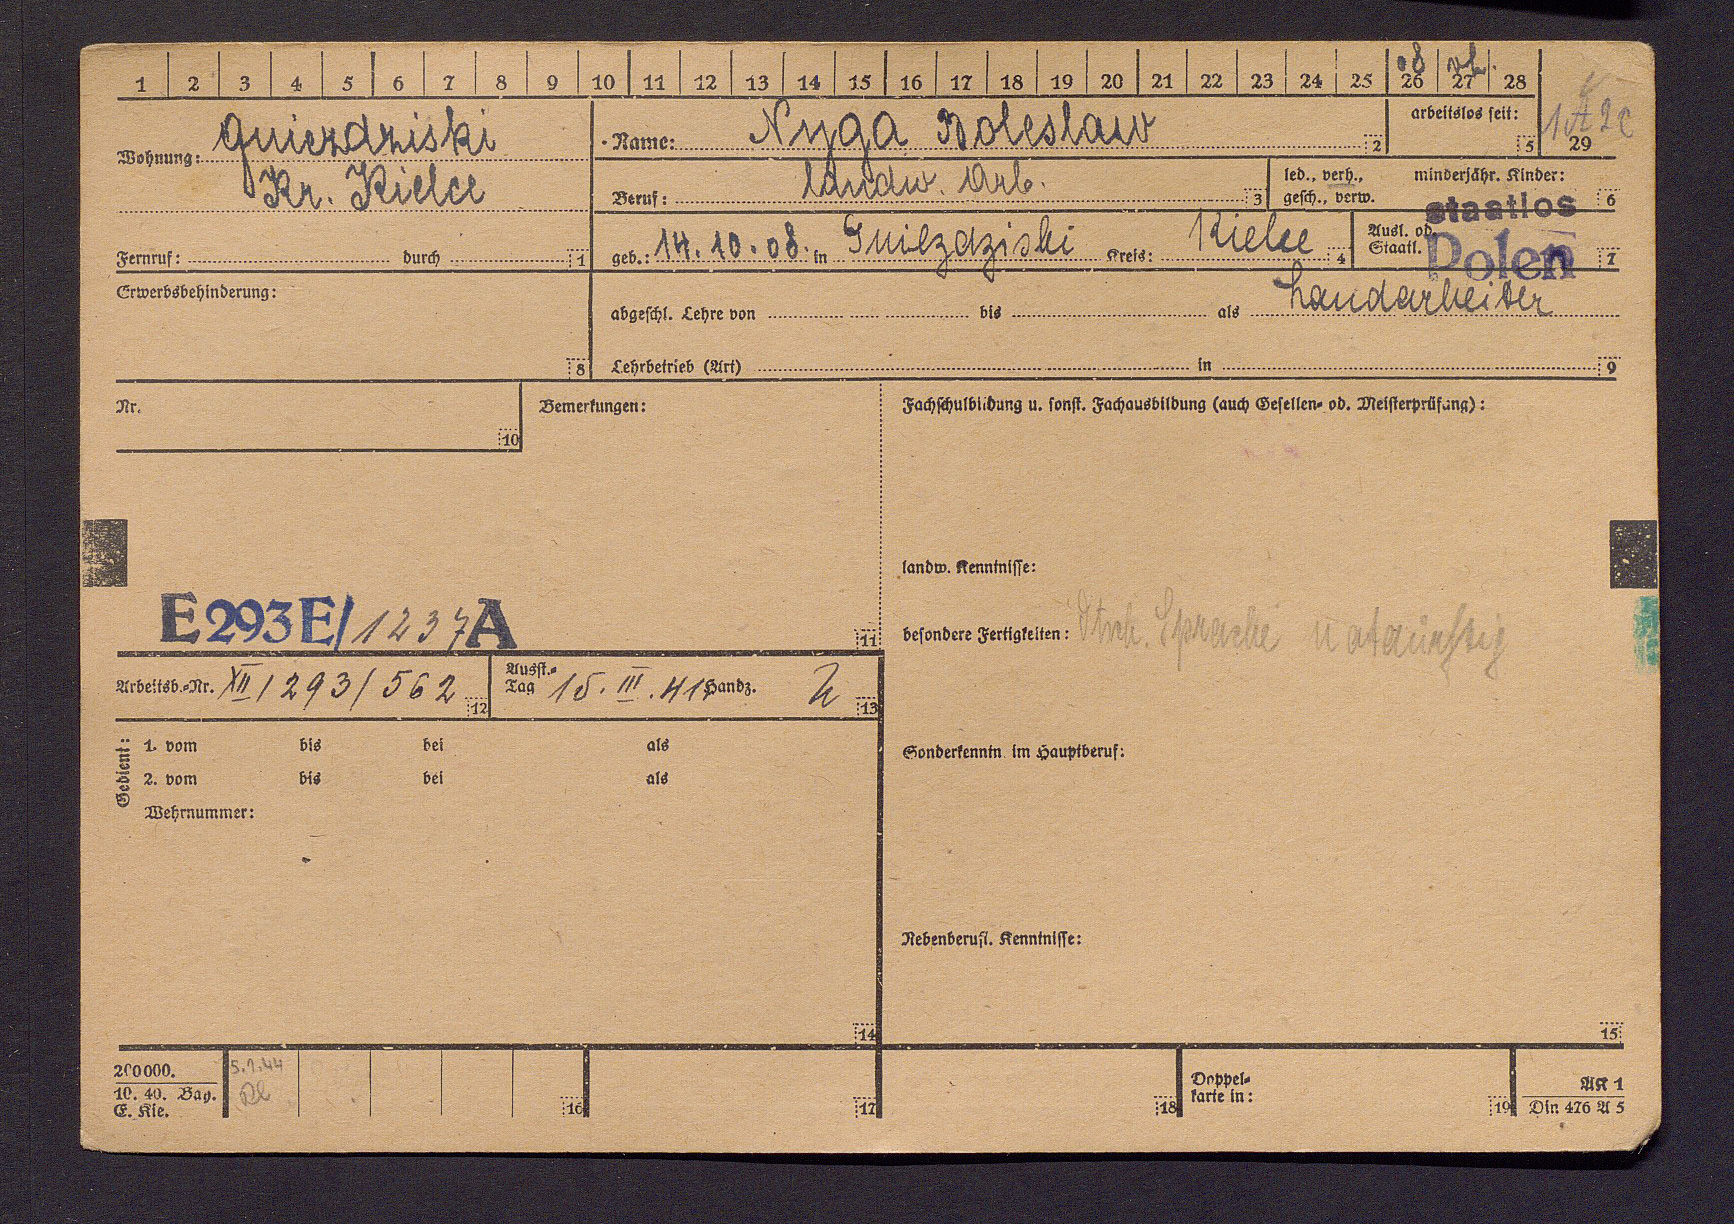 08 vh.
1 2 3 4 5 6 7 8 9 10 11 12 13 14 15 16 17 18 19 20 21 22 23 24 25 26 27 28
Wohnung: Gniezdziski
Kr. Kielce
Fernruf: durch 1
Name: Nyga Boleslaw 2
arbeitslos seit: 5
1A2c
29
Beruf: landw. Arb. 3
led., verh.,
gesch., verw.
minderjähr. Kinder: 6
geb.: 14.10.08. in Gniezdziski Kreis: Kielce 4
Ausl. od.
Staatl. 7
staatlos
Polen
Erwerbsbehinderung: 8
abgeschl. Lehre von bis als Landarbeiter
Lehrbetrieb (Art) in 9
Nr. 10
Bemerkungen:
Fachschulbildung u. sonst. Fachausbildung (auch Gesellen- od. Meisterprüfung):
landw. Kenntnisse:
E 293 E/1237 A 11
besondere Fertigkeiten: Dtsch. Sprache
Arbeitsb.-Nr. XII/293/562 12
Ausst.-
Tag 15.III.41 Handz. 13
Gedient:
1. vom bis bei als
2. vom bis bei als
Wehrnummer:
Sonderkenntn. im Hauptberuf:
Nebenberufl. Kenntnisse:
14
15
200000.
10. 40. Bag.
E. Kie.
5.1.44
16
17
18
Doppel-
karte in: 19
AK 1
Din 476 A 5